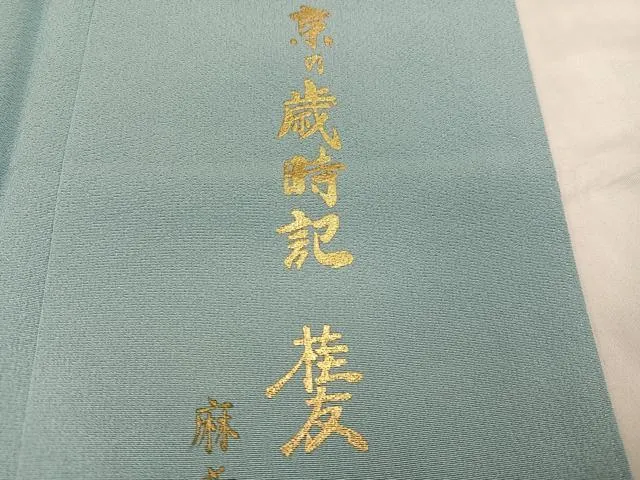 京の歳時記 桂友
麻